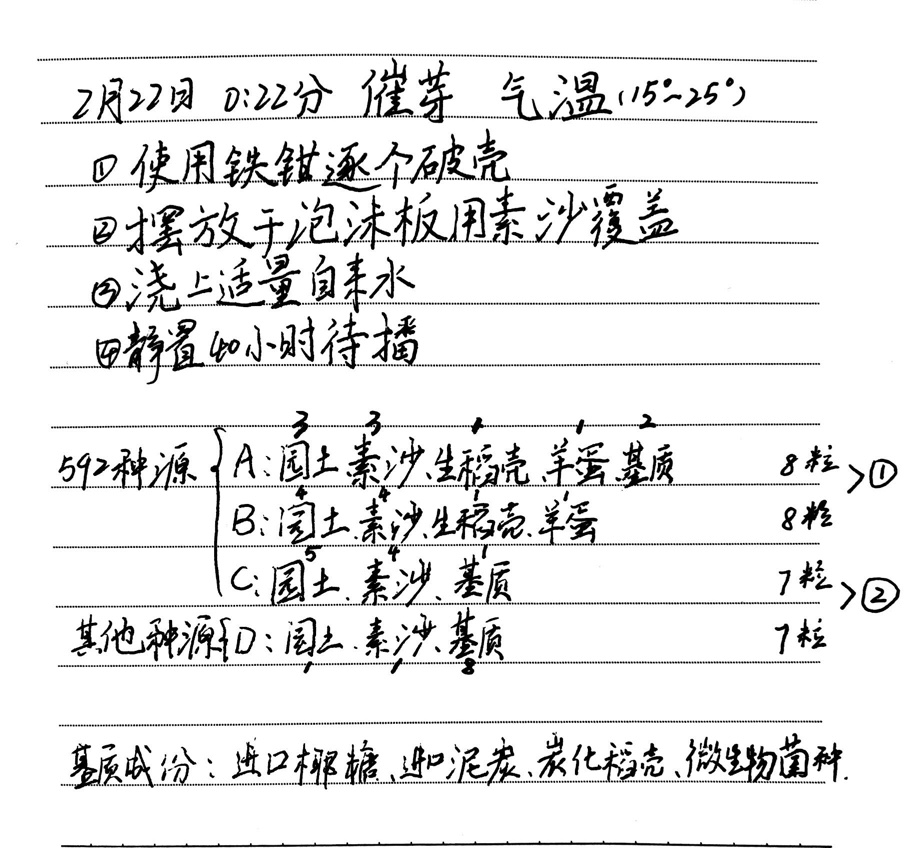 2月22日 0:22分 催芽 气温(15°~25°)
①使用铁钳逐个破壳
②摆放于泡沫板用素沙覆盖
③浇上适量自来水
④静置40小时待播
3 3 1 1 2
592种源{A:园土、素沙、生稻壳、羊蛋、基质 8粒 >①
4 4 1 1
B:园土、素沙、生稻壳、羊蛋 8粒
5 4 1
C:园土、素沙、基质 7粒 >②
其他种源{D:园土、素沙、基质 7粒
1 1 8
基质成份:进口椰糖、进口泥炭、炭化稻壳、微生物菌种.